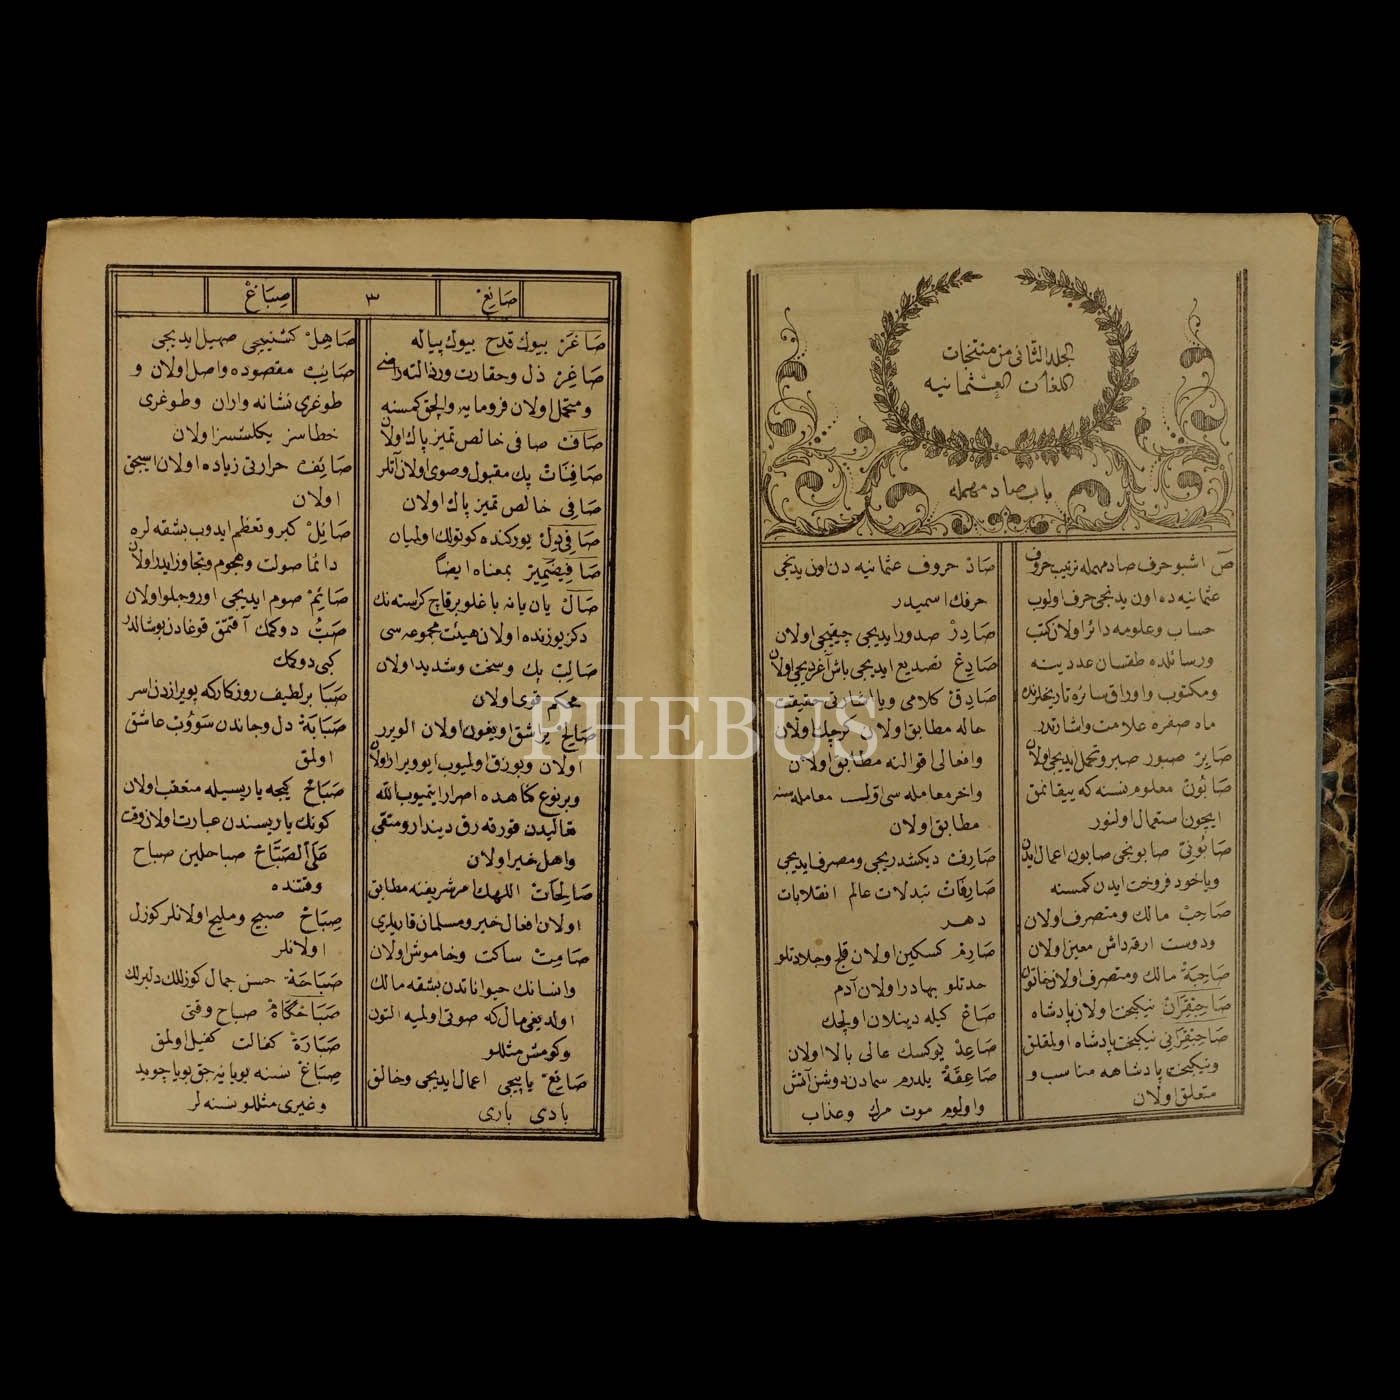 الجلد الثانى من منتخبات
اللغات العثمانيه
باب صاد مهمله
صَ اشبو حرف صاد مهمله ترتيب حروف
عثمانيه ده اون يدنجى حرف اولوب
حساب وعلومه دائر اولان كتب
ورسائلده طقسان عددينه
ومكتوب واوراق سائره تاريخلرنده
ماه صفره علامت واشارتدر
صَابِرْ صبور صبر وتحمل ايديجى اولان
صَابُونْ معلوم نسنه كه ييقانمق
ايچون استعمال اولنور
صَابُونِىْ صابونجى صابون اعمال ايدن
وياخود فروخت ايدن كمسنه
صَاحِبْ مالك ومتصرف اولان
ودوست ارقه داش معين اولان
صَاحِبَةْ مالك ومتصرف اولان خاتون
صَاحِبْقِرَانْ نيكبخت اولان پادشاه
صَاحِبْقِرَانِى نيكبخت پادشاه اولمقلق
ونيكبخت پادشاهه مناسب و
متعلق اولان
صَادْ حروف عثمانيه دن اون يدنجى
حرفك اسميدر
صَادِرْ صدور ايديجى چيقيجى اولان
صَادِعْ تصديع ايديجى باش آغرديجى اولان
صَادِقْ كلامى ويا اشارتى حقيقت
حاله مطابق اولان كرچك اولان
وافعالى اقوالنه مطابق اولان
واخر معامله سى اوليت معامله سنه
مطابق اولان
صَارِفْ ديكشديريجى ومصرف ايديجى
صَارِفَاتْ تبدلات عالم انقلابات
دهر
صَارِمْ كسكين اولان قلج وجلادتلو
حدتلو بهادر اولان آدم
صَاعْ كيله دينلان اولچك
صَاعِدْ يوكسك عالى بالا اولان
صَاعِقَةْ يلدرم سمادن دوشن آتش
واولوم موت مرك وعذاب
صَانِعْ
٣
صِبَاغْ
صَاغَرْ بيوك قدح بيوك پياله
صَاغِرْ ذل وحقارت ورذالته راضى
ومتحمل اولان فرومايه والچق كمسنه
صَافْ صافى خالص تميز پاك اولان
صَافِنَاتْ پك مقبول وصوى اولان آتلر
صَافِى خالص تميز پاك اولان
صَافِى دِلْ يوركنده كوتولك اولميان
صَافِيضَمِيرْ بمعناه ايضاً
صَالْ يان يانه باغلو برقاچ كراسته نك
دكز يوزنده اولان هيئت مجموعه سى
صَالِبْ پك وسخت وشديد اولان
محكم قوى اولان
صَالِحْ يراشق اويغون اولان الويرر
اولان وبوزق اولميوب ايو وبرار اولان
وبرنوع كناهده اصرار ايتميوب الله
تعاليدن قورقه رق ديندار ومتقى
واهل خير اولان
صَالِحَاتْ اللهك امر شريفنه مطابق
اولان افعال خير ومسلمان قاريلرى
صَامِتْ ساكت وخاموش اولان
وانسانك حيواناتدن بشقه مالك
اولديغى مال كه صوتى اولميه التون
وكومش مثللو
صَانِعْ ياپيجى اعمال ايديجى وخالق
بادى بارى
صَاهِلْ كشنييجى صهيل ايديجى
صَائِبْ مقصوده واصل اولان و
طوغرى نشانه واران وطوغرى
خطاسز يكلشسز اولان
صَائِفْ حرارتى زياده اولان اسيجق
اولان
صَائِلْ كبر وتعظم ايدوب بشقه لره
دائما صولت وهجوم وتجاوز ايدر اولان
صَائِمْ صوم ايديجى اوروجلو اولان
صَبّْ دوكمك آقتمق قوغادن بوشالدر
كبى دوكمك
صَبَا بر لطيف روزكاركه پويرازدن اسر
صَبَابَةْ دل وجاندن سَوُوب عاشق
اولمق
صَبَاحْ كيجه ياريسيله متعقب اولان
كونك ياريسندن عبارت اولان وقت
عَلَى الصَّبَاحْ صباحلين صباح
وقتنده
صِبَاحْ صبيح ومليح اولانلر كوزل
اولانلر
صَبَاحَةْ حسن جمال كوزللك دلبرلك
صَبَاحْگَاهْ صباح وقتى
صَبَارَةْ كفالت كفيل اولمق
صِبَاغْ نسنه بويانه جق بويا چويد
وغيرى مثللو نسنه لر
PHEBUS